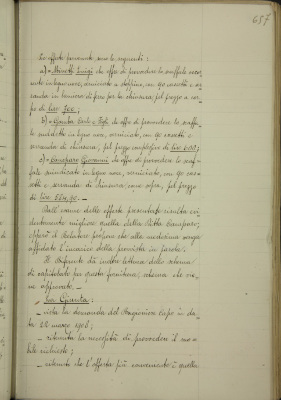 657
Le offerte presentate sono le seguenti:
a) = Minetti Luigi che offre di provvedere lo scaffale
in legno noce, verniciato a stoppino, con 90 cassetti e
serranda in lamiera di ferro per la chiusura, pel prezzo a cor-
po di lire 700;
b) = Carlo e Figli che offre di provvedere lo scaffa-
le suddetto in legno noce, verniciato, con 90 cassetti e
serranda di chiusura, pel prezzo complessivo di lire 600;
c) = Canaparo Giovanni che offre di provvedere lo scaf-
fale suindicato in legno noce, verniciato, con 90 cas-
setti e serranda di chiusura come sopra, pel prezzo
di lire 554,90.
Dall'esame delle offerte presentate risulta evi-
dentemente migliore quella della Ditta Canaparo;
epperò il Relatore propone che alla medesima venga
affidato l'incarico della provvista in parola.
Il Referente dà inoltre lettura dello schema
di capitolato per questa fornitura, schema che vie-
ne approvato.
La Giunta:
- vista la domanda del Ragioniere Capo in da-
ta 22 marzo 1906;
- ritenuta la necessità di provvedere il mo-
bile richiesto;
- ritenuto che l'offerta più conveniente è quella